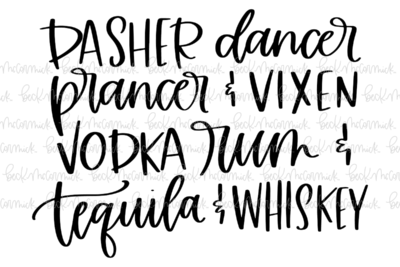 DASHER dancer
prancer & VIXEN
VODKA rum &
tequila & WHISKEY